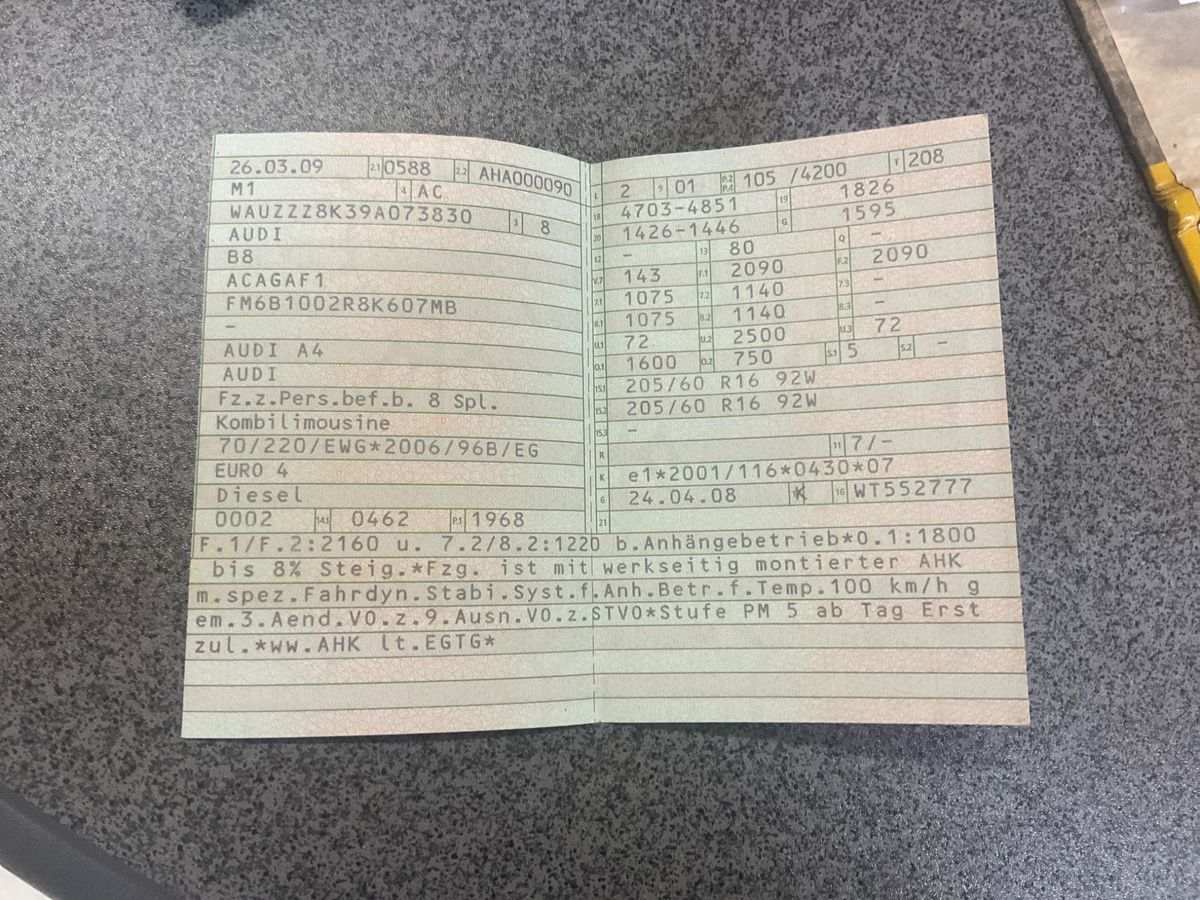 26.03.09 2.1 0588 2.2 AHA000090
M1 4 AC
WAUZZZ8K39A073830 3 8
AUDI
B8
ACAGAF1
FM6B1002R8K607MB
–
AUDI A4
AUDI
Fz.z.Pers.bef.b. 8 Spl.
Kombilimousine
70/220/EWG*2006/96B/EG
EURO 4
Diesel
0002 14.1 0462 P.1 1968
L 2 9 01 P.2 P.4 105 /4200 T 208
18 4703-4851 19 1826
20 1426-1446 G 1595
12 – 13 80 Q –
V.7 143 F.1 2090 F.2 2090
7.1 1075 7.2 1140 7.3 –
8.1 1075 8.2 1140 8.3 –
U.1 72 U.2 2500 U.3 72
O.1 1600 O.2 750 S.1 5 S.2 –
15.1 205/60 R16 92W
15.2 205/60 R16 92W
15.3 –
R 11 7/–
K e1*2001/116*0430*07
6 24.04.08 17 K 16 WT552777
21
F.1/F.2:2160 u. 7.2/8.2:1220 b.Anhängebetrieb*O.1:1800
bis 8% Steig.*Fzg. ist mit werkseitig montierter AHK
m.spez.Fahrdyn.Stabi.Syst.f.Anh.Betr.f.Temp.100 km/h g
em.3.Aend.VO.z.9.Ausn.VO.z.STVO*Stufe PM 5 ab Tag Erst
zul.*ww.AHK lt.EGTG*